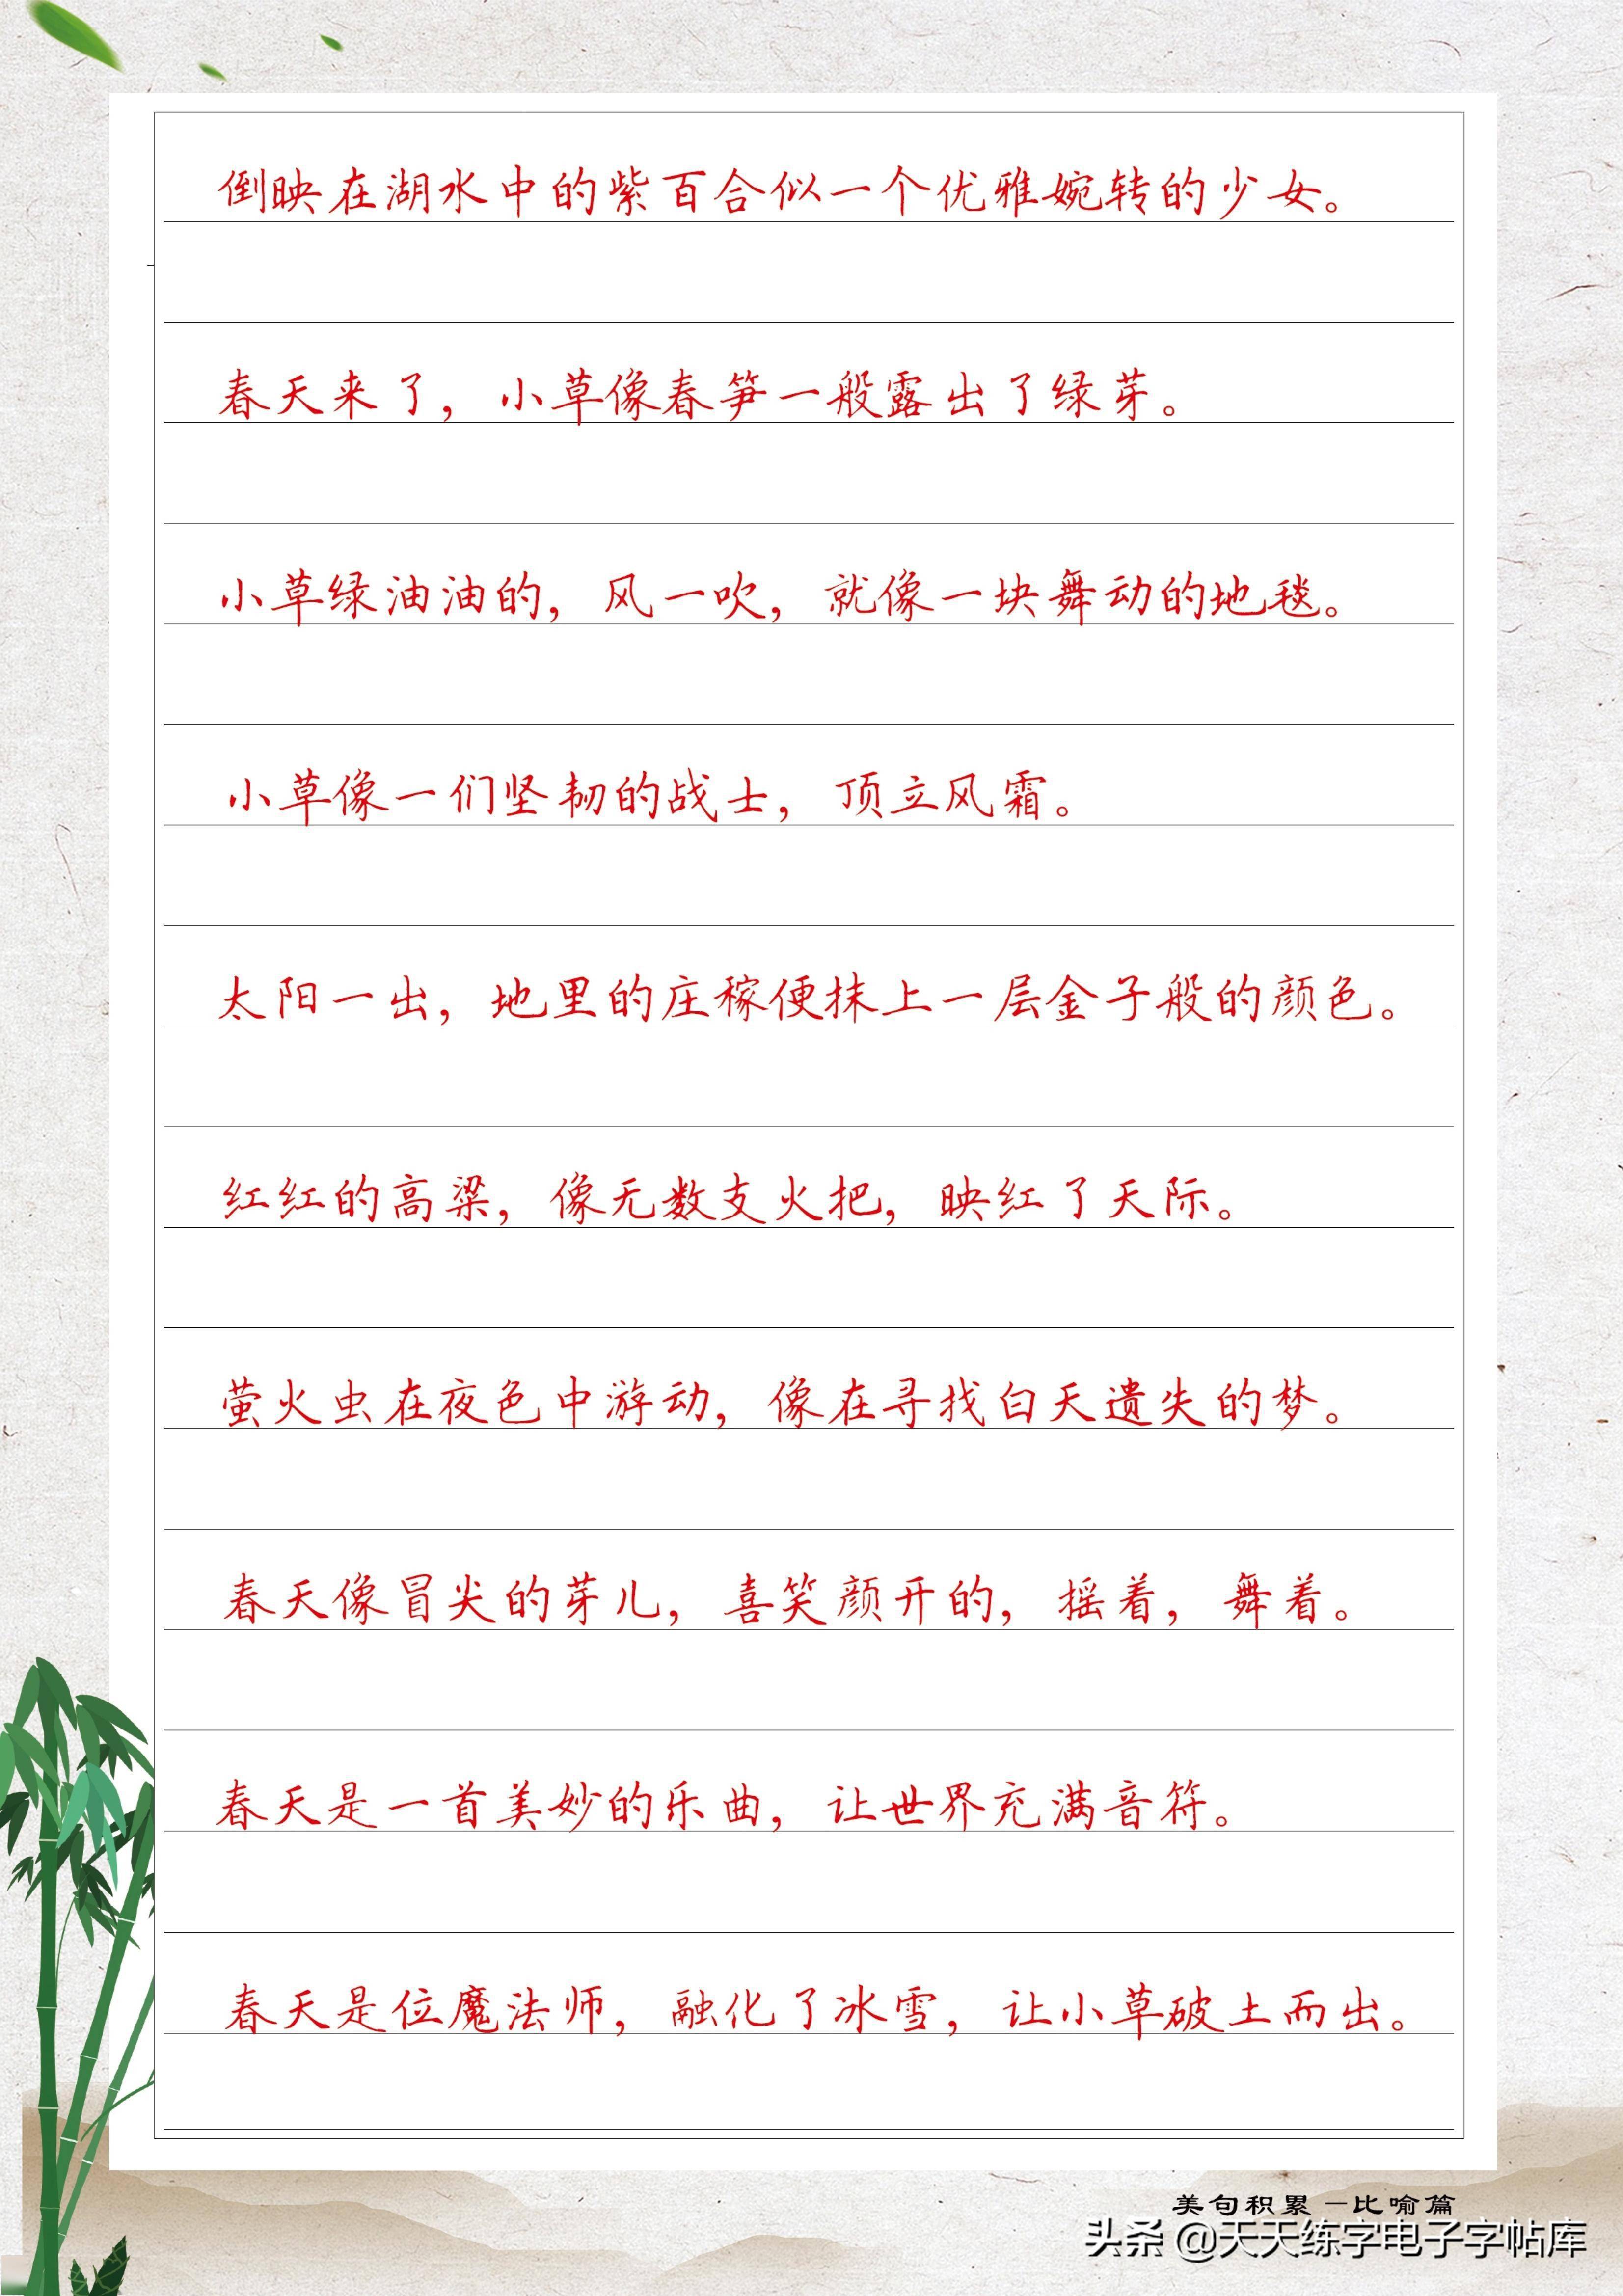 倒映在湖水中的紫百合似一个优雅婉转的少女。
春天来了，小草像春笋一般露出了绿芽。
小草绿油油的，风一吹，就像一块舞动的地毯。
小草像一们坚韧的战士，顶立风霜。
太阳一出，地里的庄稼便抹上一层金子般的颜色。
红红的高粱，像无数支火把，映红了天际。
萤火虫在夜色中游动，像在寻找白天遗失的梦。
春天像冒尖的芽儿，喜笑颜开的，摇着，舞着。
春天是一首美妙的乐曲，让世界充满音符。
春天是位魔法师，融化了冰雪，让小草破土而出。
美句积累 —比喻篇
头条 @天天练字电子字帖库